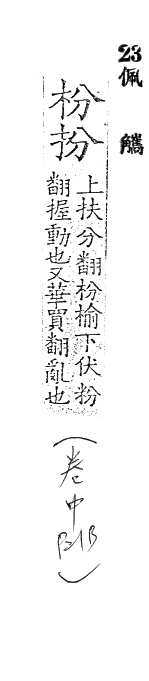 23佩觿
枌扮
上扶分翻枌榆下伏粉
翻握動也又華買翻亂也
（卷中